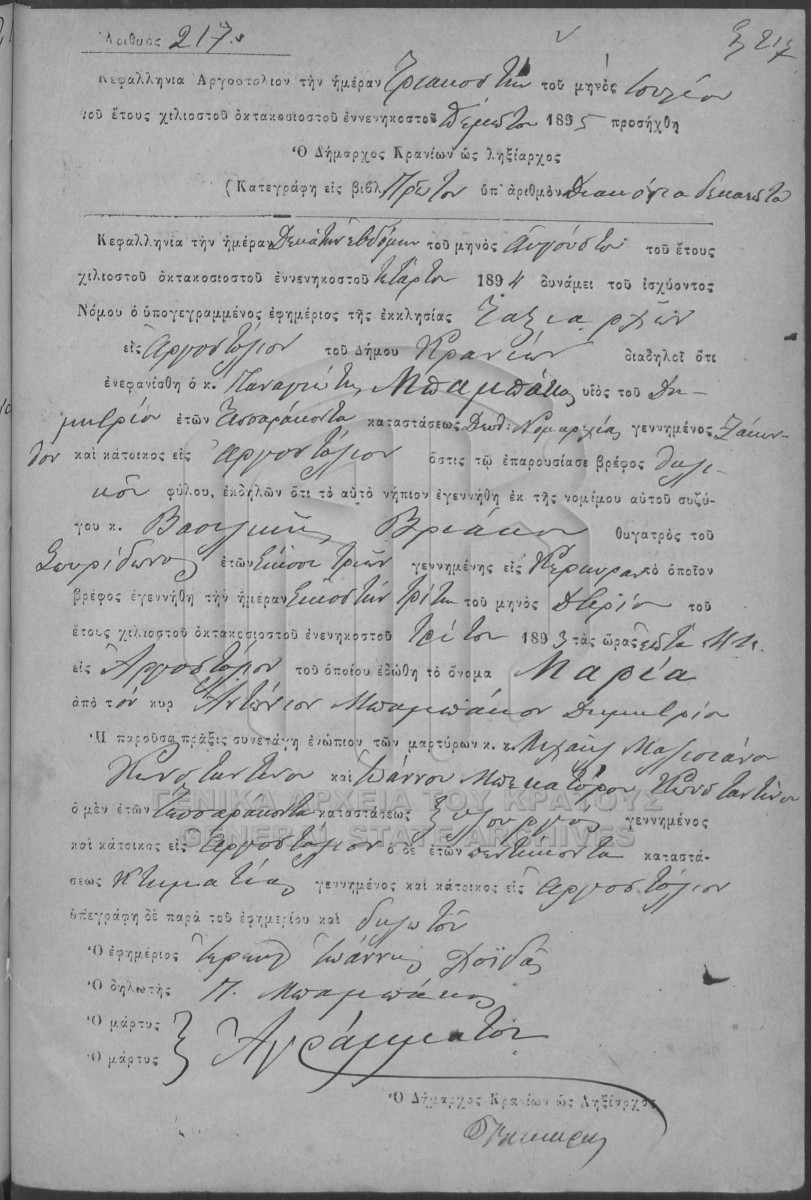 Ἀριθμὸς 217.
217
Κεφαλληνία Ἀργοστόλιον τὴν ἡμέραν Τριακοστὴν τοῦ μηνὸς Ἰουλίου
τοῦ ἔτους χιλιοστοῦ ὀκτακοσιοστοῦ ἐννενηκοστοῦ Πέμπτου 1895 προσήχθη
Ὁ Δήμαρχος Κρανίων ὡς ληξίαρχος
(Κατεγράφη εἰς βιβλ. Πρῶτον ὑπ' ἀριθμὸν Διακόσια δεκαεπτὰ
Κεφαλληνία τὴν ἡμέραν Δεκάτην ἑβδόμην τοῦ μηνὸς Αὐγούστου τοῦ ἔτους
χιλιοστοῦ ὀκτακοσιοστοῦ ἐννενηκοστοῦ τετάρτου 1894 δυνάμει τοῦ ἰσχύοντος
Νόμου ὁ ὑπογεγραμμένος ἐφημέριος τῆς ἐκκλησίας Ταξιαρχῶν
εἰς Ἀργοστόλιον τοῦ Δήμου Κρανίων διαδηλοῖ ὅτι
ἐνεφανίσθη ὁ κ. Παναγιώτης Μπαμπάκος υἱὸς τοῦ Δη-
μητρίου ἐτῶν Τεσσαράκοντα καταστάσεως Διευθ: Νομαρχίας γεννημένος Ζάκυν-
θον καὶ κάτοικος εἰς Ἀργοστόλιον ὅστις τῷ ἐπαρουσίασε βρέφος θηλυ-
κὸν φύλου, ἐκδηλῶν ὅτι τὸ αὐτὸ νήπιον ἐγεννήθη ἐκ τῆς νομίμου αὐτοῦ συζύ-
γου κ. Βασιλικῆς Βριάκου θυγατρὸς τοῦ
Σπυρίδωνος ἐτῶν Εἴκοσι τριῶν γεννημένης εἰς Κέρκυραν τὸ ὁποῖον
βρέφος ἐγεννήθη τὴν ἡμέραν Εἰκοστὴν τρίτην τοῦ μηνὸς Δ/βρίου τοῦ
ἔτους χιλιοστοῦ ὀκτακοσιοστοῦ ἐνενηκοστοῦ τρίτου 1893 τὰς ὥρας ἑπτὰ Μ.μ.
εἰς Ἀργοστόλιον τοῦ ὁποίου ἐδώθη τὸ ὄνομα Μαρία
ἀπὸ τὸν κυρ Ἀντώνιον Μπαμπάκον Δημητρίου
Ἡ παροῦσα πρᾶξις συνετάγη ἐνώπιον τῶν μαρτύρων κ. κ. Μιχαὴλ
Κωνσταντίνου καὶ Ἰωάννου Μπεκατόρου Κωνσταντίνου
ὁ μὲν ἐτῶν Τεσσαράκοντα καταστάσεως ξυλουργὸς γεννημένος
καὶ κάτοικος εἰς Ἀργοστόλιον ὁ δὲ ἐτῶν πεντήκοντα καταστά-
σεως Κτηματίας γεννημένος καὶ κάτοικος εἰς Ἀργοστόλιον
ὑπεγράφη δὲ παρὰ τοῦ ἐφημερίου καὶ δηλωτοῦ
Ὁ ἐφημέριος Ἱερεὺς Ἰωάννης
Ὁ δηλωτὴς Π. Μπαμπάκος
Ὁ μάρτυς } Ἀγράμματοι
Ὁ μάρτυς
Ὁ Δήμαρχος Κρανίων ὡς Ληξίαρχος
ΓΕΝΙΚΑ ΑΡΧΕΙΑ ΤΟΥ ΚΡΑΤΟΥΣ
GENERAL STATE ARCHIVES